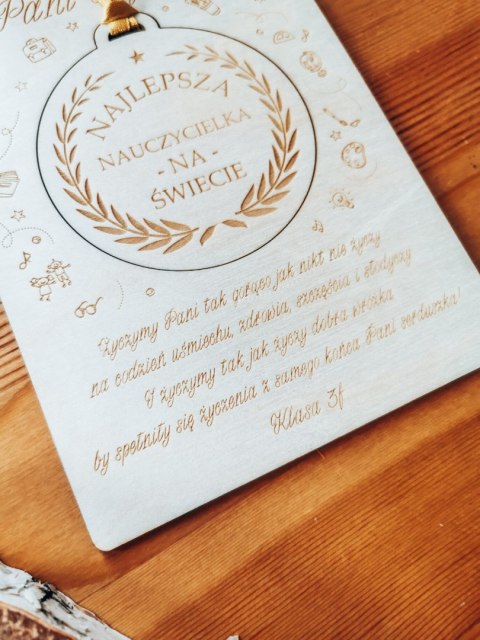 Pani
NAJLEPSZA
NAUCZYCIELKA
- NA -
ŚWIECIE
Życzymy Pani tak gorąco jak nikt nie życzy
na codzień uśmiechu, zdrowia, szczęścia i słodyczy
I życzymy tak jak życzy dobra wróżka
by spełniły się życzenia z samego końca Pani serduszka!
Klasa 3f